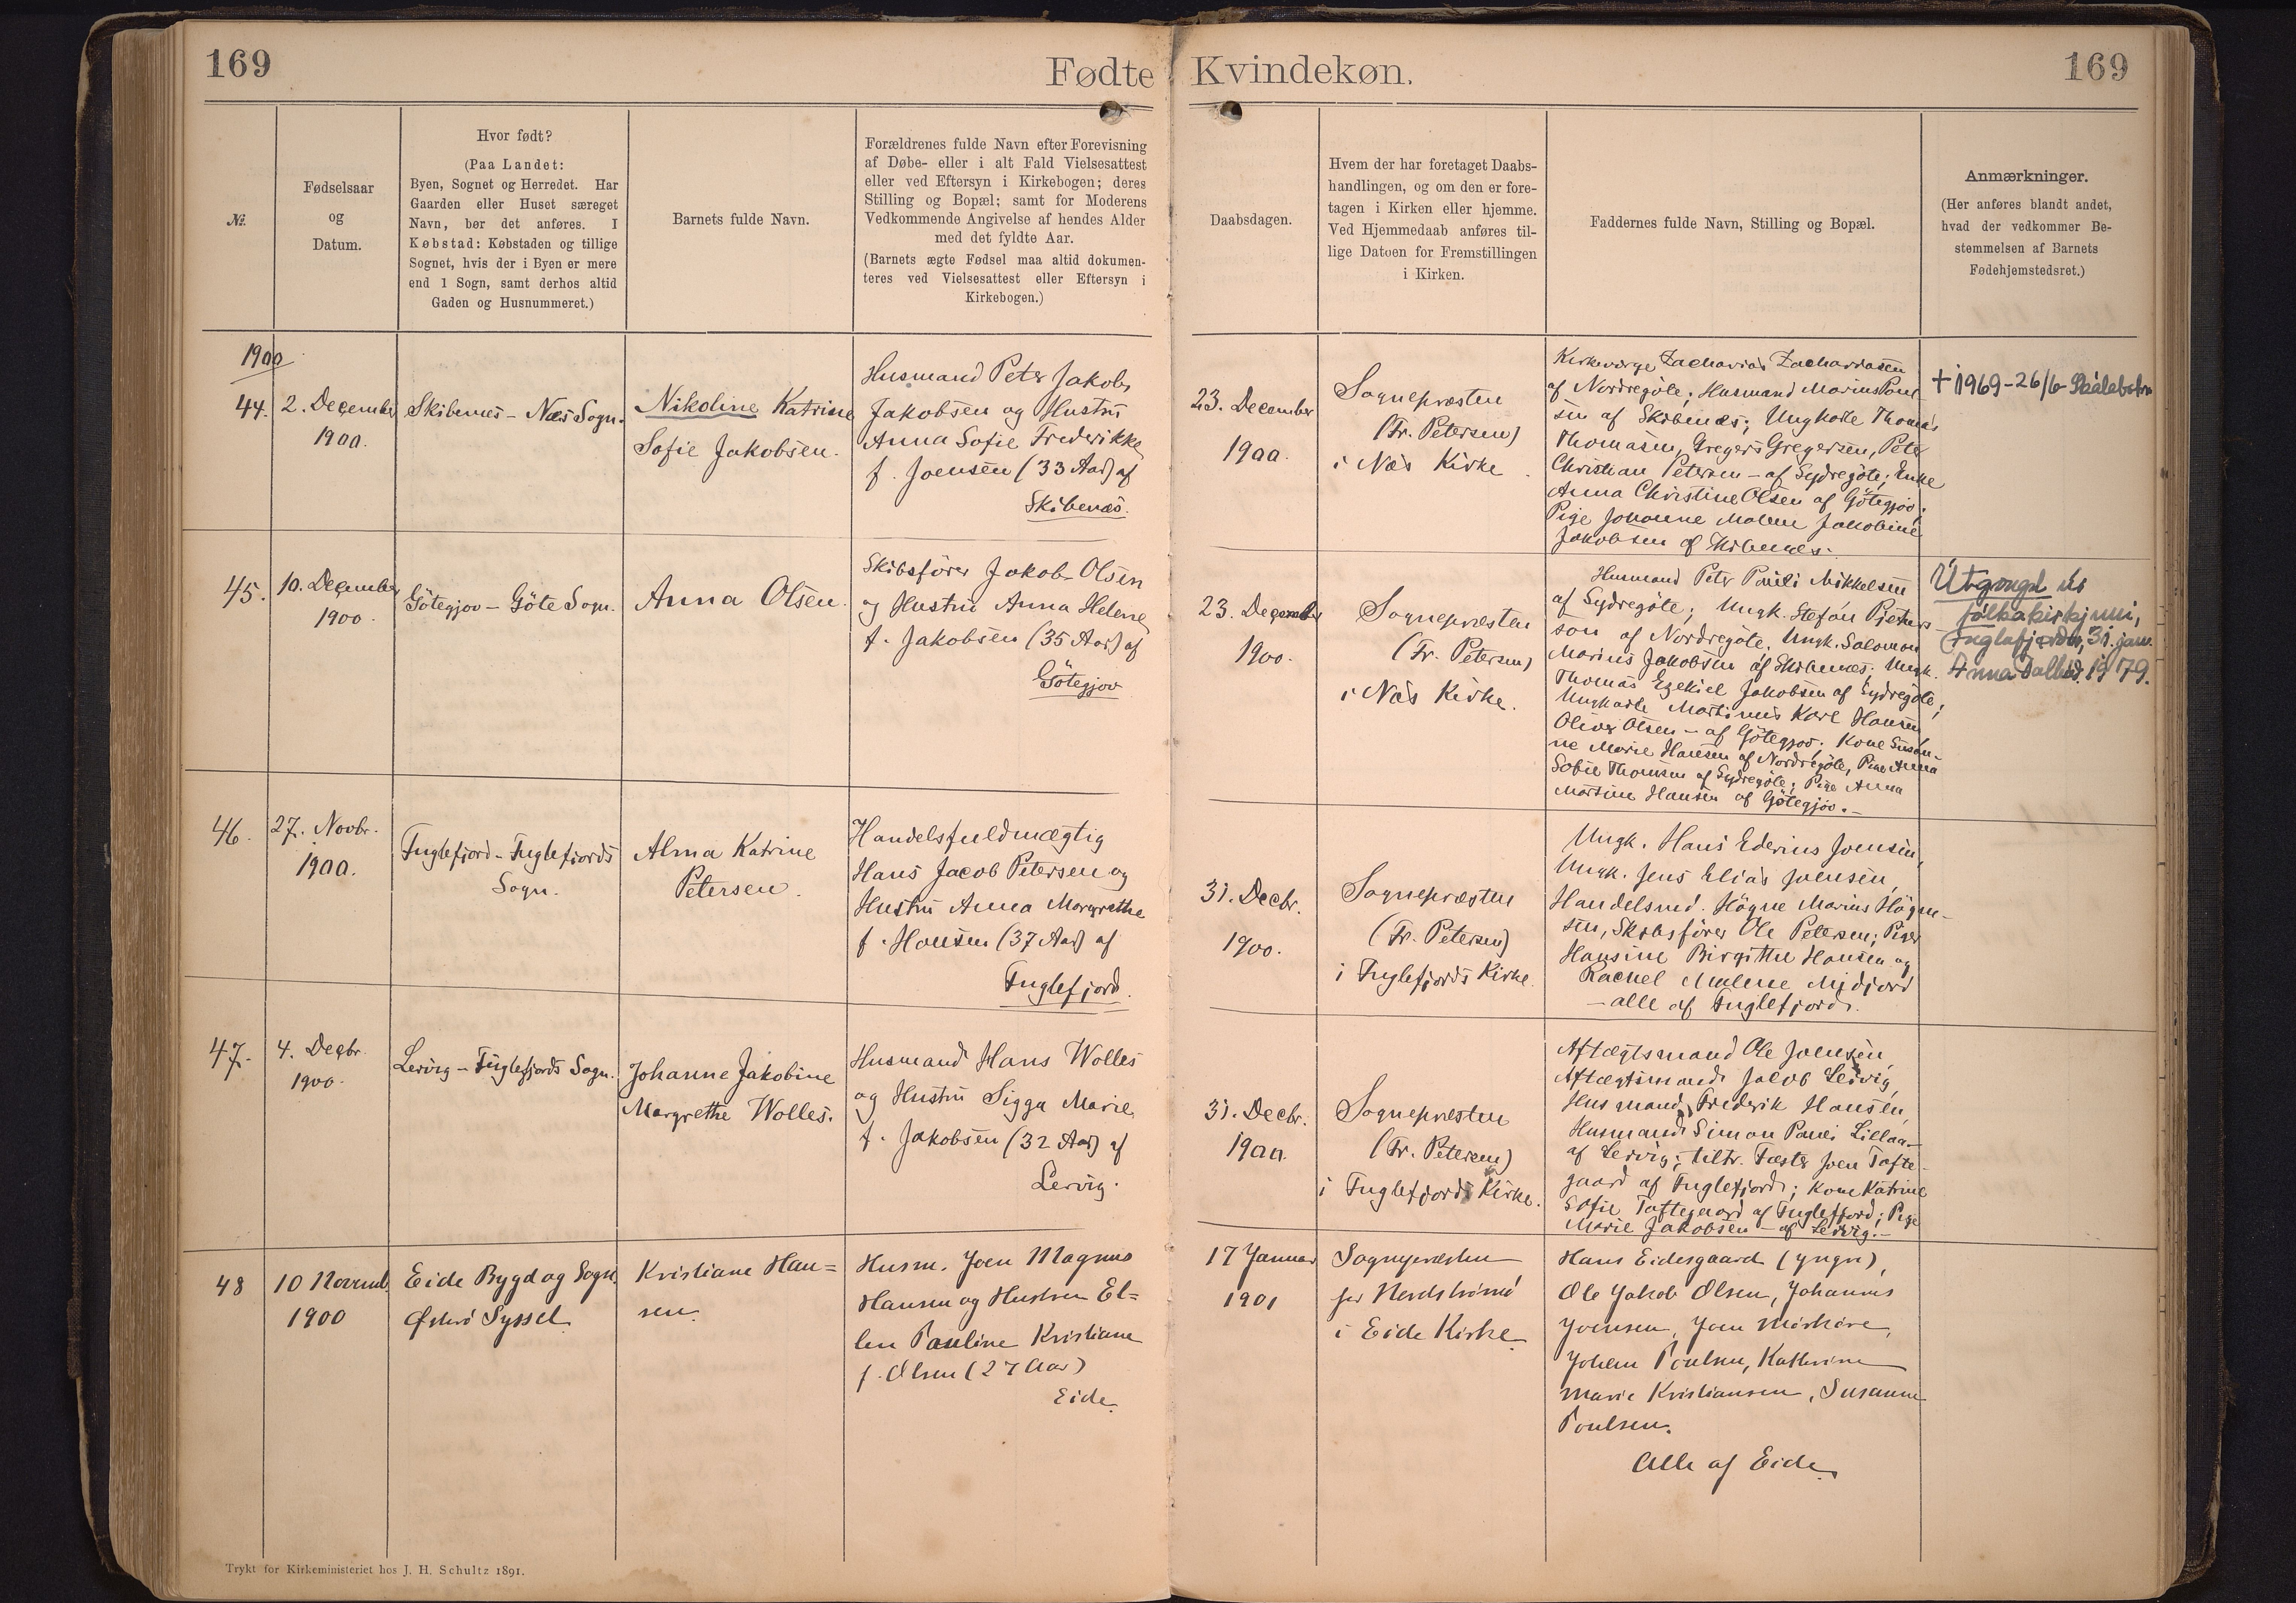 169
Fødte Kvindekøn.
169
№.
Fødselsaar
og
Datum.
Hvor født?
(Paa Landet:
Byen, Sognet og Herredet. Har
Gaarden eller Huset særeget
Navn, bør det anføres. I
Købstad: Købstaden og tillige
Sognet, hvis der i Byen er mere
end 1 Sogn, samt derhos altid
Gaden og Husnummeret.)
Barnets fulde Navn.
Forældrenes fulde Navn efter Forevisning
af Døbe- eller i alt Fald Vielsesattest
eller ved Eftersyn i Kirkebogen; deres
Stilling og Bopæl; samt for Moderens
Vedkommende Angivelse af hendes Alder
med det fyldte Aar.
(Barnets ægte Fødsel maa altid dokumen-
teres ved Vielsesattest eller Eftersyn i
Kirkebogen.)
Daabsdagen.
Hvem der har foretaget Daabs-
handlingen, og om den er fore-
tagen i Kirken eller hjemme.
Ved Hjemmedaab anføres til-
lige Datoen for Fremstillingen
i Kirken.
Faddernes fulde Navn, Stilling og Bopæl.
Anmærkninger.
(Her anføres blandt andet,
hvad der vedkommer Be-
stemmelsen af Barnets
Fødehjemstedsret.)
1900
44.
2. December
1900.
Skibenes - Næs Sogn.
Nikoline Katrine
Sofie Jakobsen.
Husmand Peter Jakob
Jakobsen og Hustru
Anna Sofie Frederikke
f. Joensen (33 Aar) af
Skibenæs.
23. December
1900.
Sognepræsten
(Fr. Petersen)
i Næs Kirke.
Kirkeværge Zacharias Zachariasen
af Nordregöte; Husmand Marius Poul
sen af Skibenæs; Ungkarle Thomas
Thomasen, Gregers Gregersen, Peter
Christian Petersen - af Sydregöte; Enke
Anna Christine Olsen af Götegjov;
Pige Johanne Malene Jakobine
Jakobsen af Skibenæs.
+ 1969-26/6
45.
10. December
1900.
Götegjov - Göte Sogn.
Anna Olsen.
Skibsfører Jakob Olsen
og Hustru Anna Helene
f. Jakobsen (35 Aar) af
Götegjov
23. December
1900.
Sognepræsten
(Fr. Petersen)
i Næs Kirke.
Husmand Peter Pauli Mikkelsen
af Sydregöte; Ungk. Stefan Pjeturs-
son af Nordregöte. Ungk. Salomon
Marius Jakobsen af Skibenæs; Ungk.
Thomas Ezekiel Jakobsen af Sydregöte;
Ungkarle Martinus Karl Hansen,
Oliver Olsen - af Götegjov. Kone Susan-
ne Marie Hansen af Nordregöte, Pige Anna
Sofie Thomsen af Sydregöte; Pige Anna
Martine Hansen af Götegjov.-
Útgongd úr
fólkakirkjuni,
Fuglafjørdur, 31. jan.
Anna 1979.
46.
27. Novbr.
1900.
Fuglefjord - Fuglefjords
Sogn.
Alma Katrine
Petersen.
Handelsfuldmægtig
Hans Jacob Petersen og
Hustru Anna Margrethe
f. Hansen (37 Aar) af
Fuglefjord.
31. Decbr.
1900.
Sognepræsten
(Fr. Petersen)
i Fuglefjords Kirke.
Ungk. Hans Ederius Joensen,
Ungk. Jens Elias Joensen,
Handelsmd. Högne Marius Högne-
sen, Skibsfører Ole Petersen; Piger
Hansine Birgitte Hansen og
Rachel Malene Midjord
- alle af Fuglefjord.
47.
4. Decbr.
1900.
Lervig - Fuglefjords Sogn.
Johanne Jakobine
Margrethe Wolles.
Husmand Hans Wolles
og Hustru Sigga Marie
f. Jakobsen (32 Aar) af
Lervig.
31. Decbr.
1900.
Sognepræsten
(Fr. Petersen)
i Fuglefjords Kirke.
Aftægtsmand Ole Joensen,
Aftægtsmand Jacob Lervig,
Husmand Frederik Hansen,
Husmand Simon Pauli Lillaa-
af Lervig; tiltr. Fæster Joen Tofte-
gaard af Fuglefjord; Kone Katrine
Sofie Toftegaard af Fuglefjord; Pige
Marie Jakobsen - af Lervig.-
48
10 Novemb.
1900
Eide Bygd og Sogn.
Østerö Syssel.
Kristiane Han=
sen.
Husm. Joen Magnus
Hansen og Hustru El=
len Pauline Kristiane
f. Olsen (27 Aar)
Eide.
17 Januar
1901
Sognepræsten
for Nordströmö
i Eide Kirke.
Hans Eidesgaard (yngri),
Ole Jakob Olsen, Johannes
Joensen, Joen Mörköre,
Johan Poulsen, Kathrine
Marie Kristiansen, Susanne
Poulsen.
Alle af Eide.
Trykt for Kirkeministeriet hos J. H. Schultz 1891.